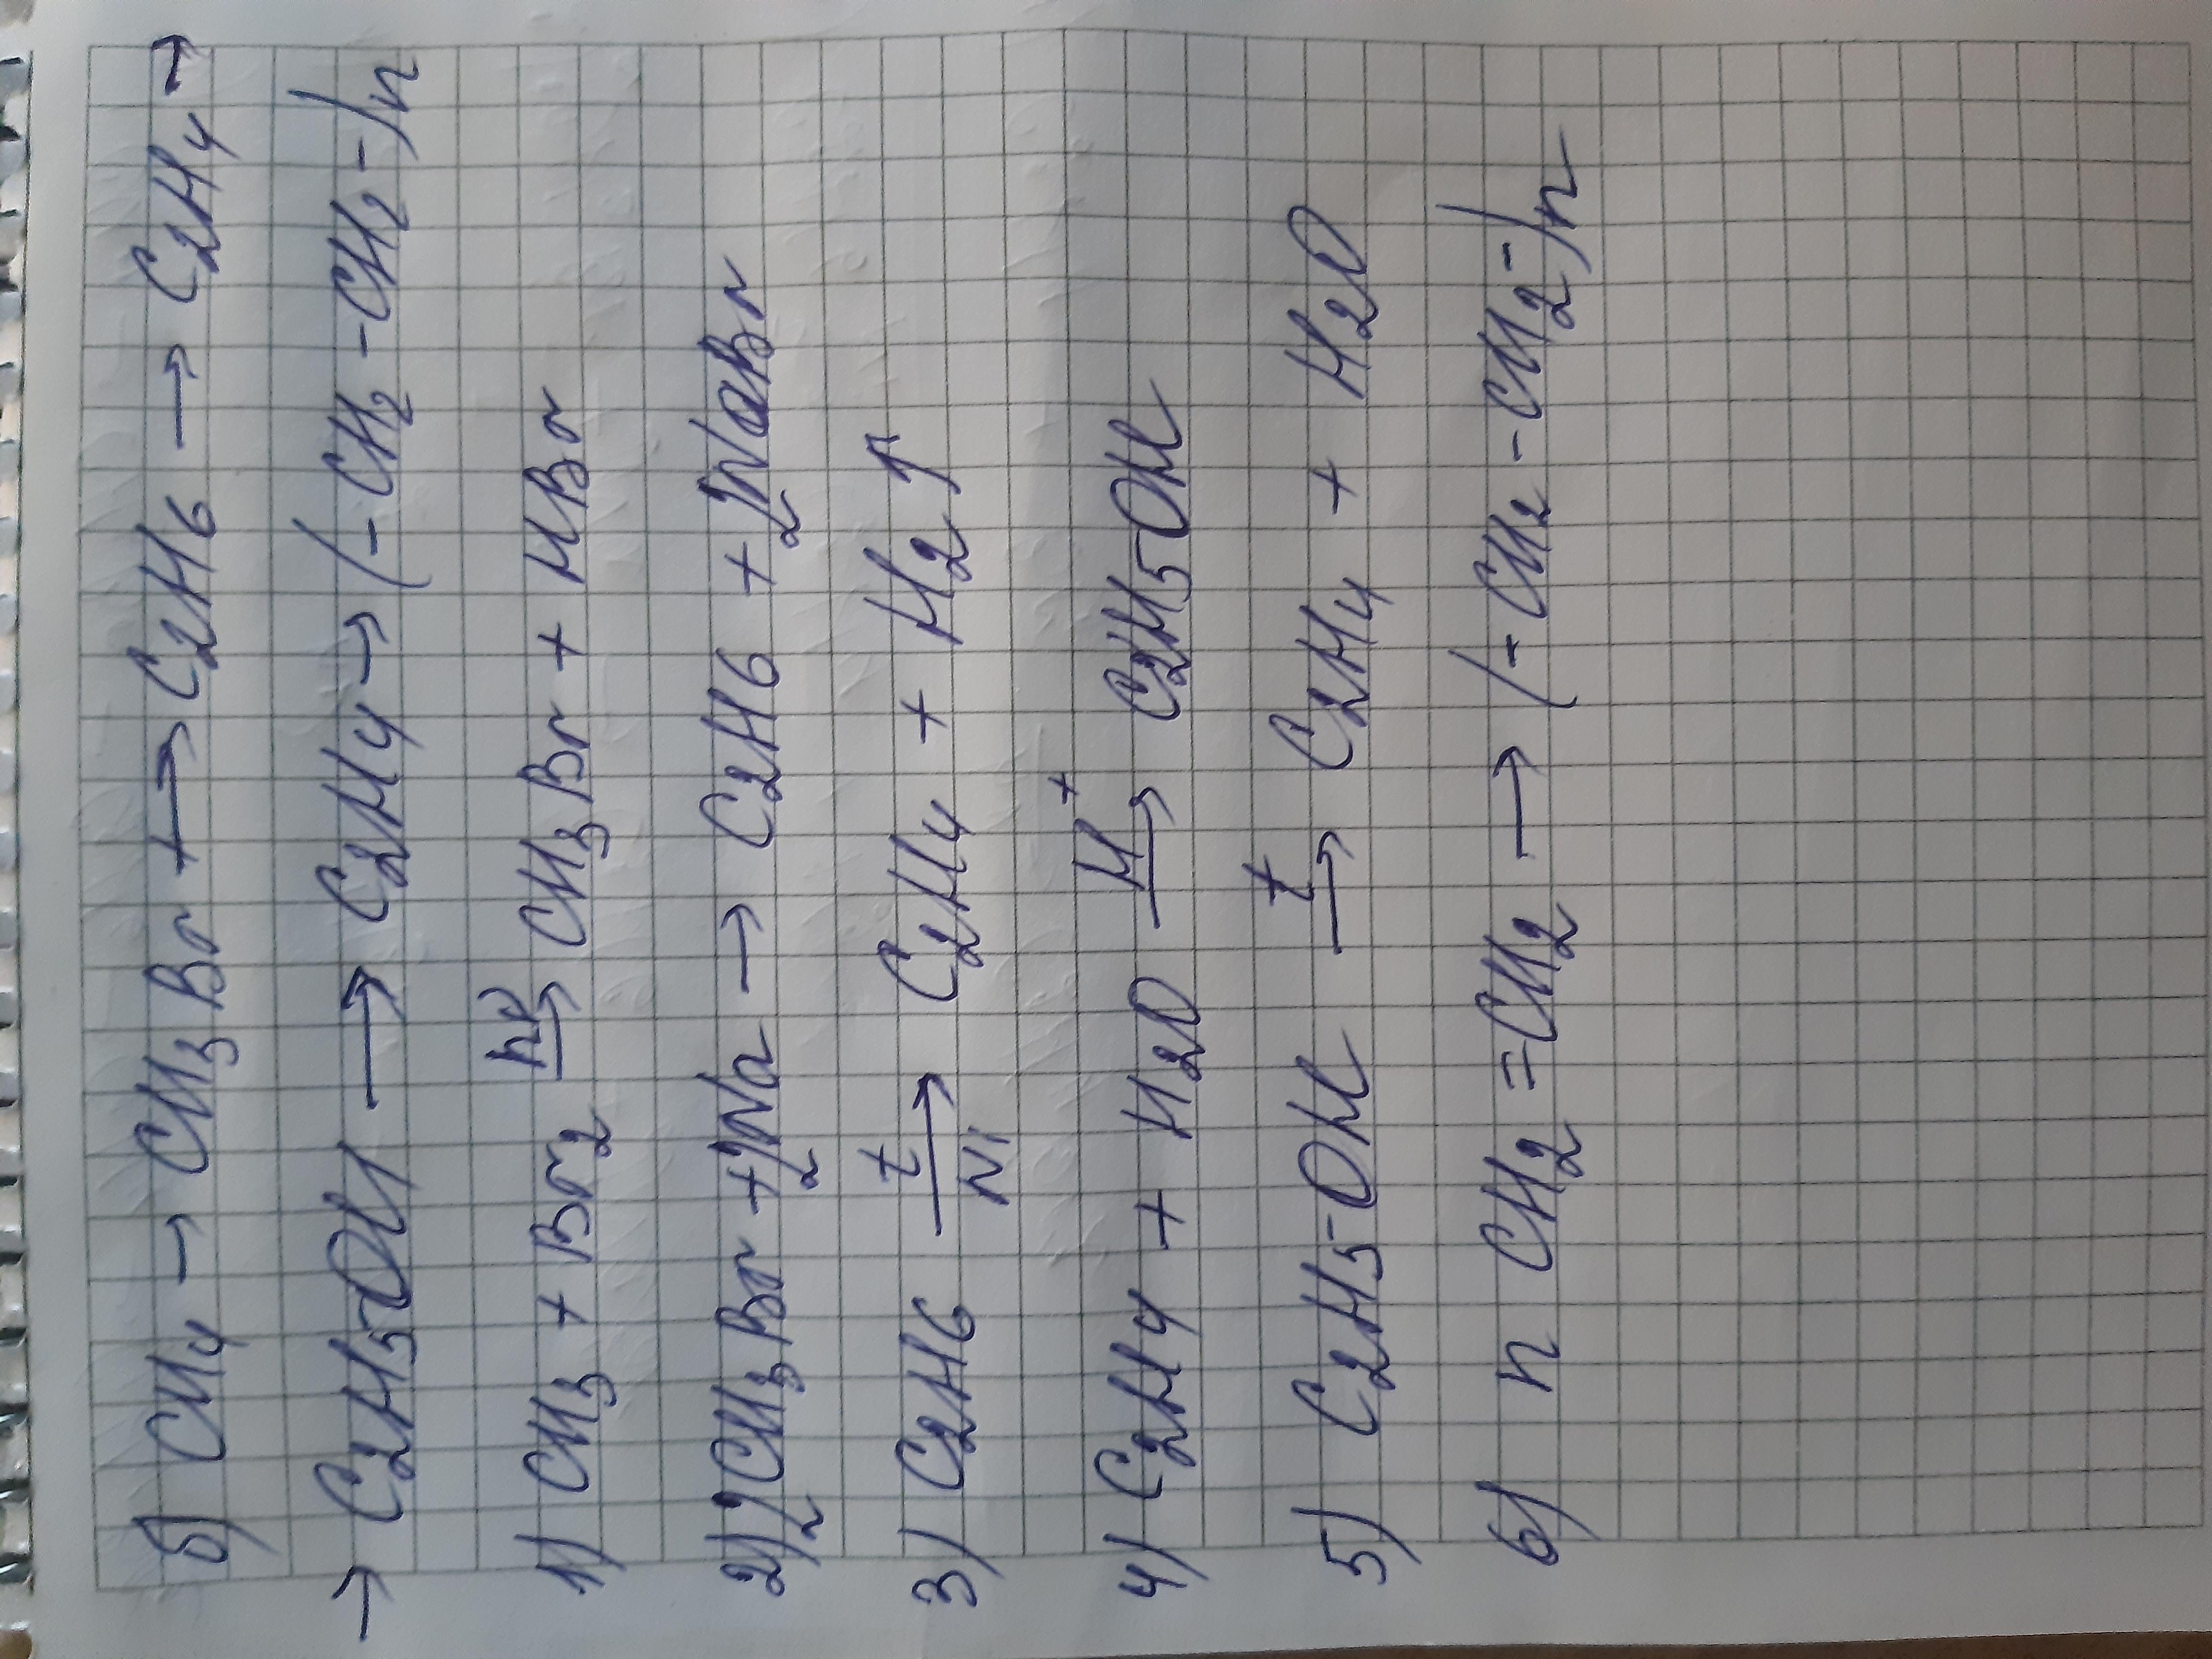 б) CH4 → CH3Br → C2H6 → C2H4 →
→ C2H5OH → C2H4 → (-CH2-CH2-)n
1) CH3 + Br2 hν→ CH3Br + HBr
2) 2CH3Br + 2Na → C2H6 + 2NaBr
3) C2H6 t→Ni C2H4 + H2↑
4) C2H4 + H2O H+→ C2H5OH
5) C2H5-OH t→ C2H4 + H2O
6) n CH2=CH2 → (-CH2-CH2-)n